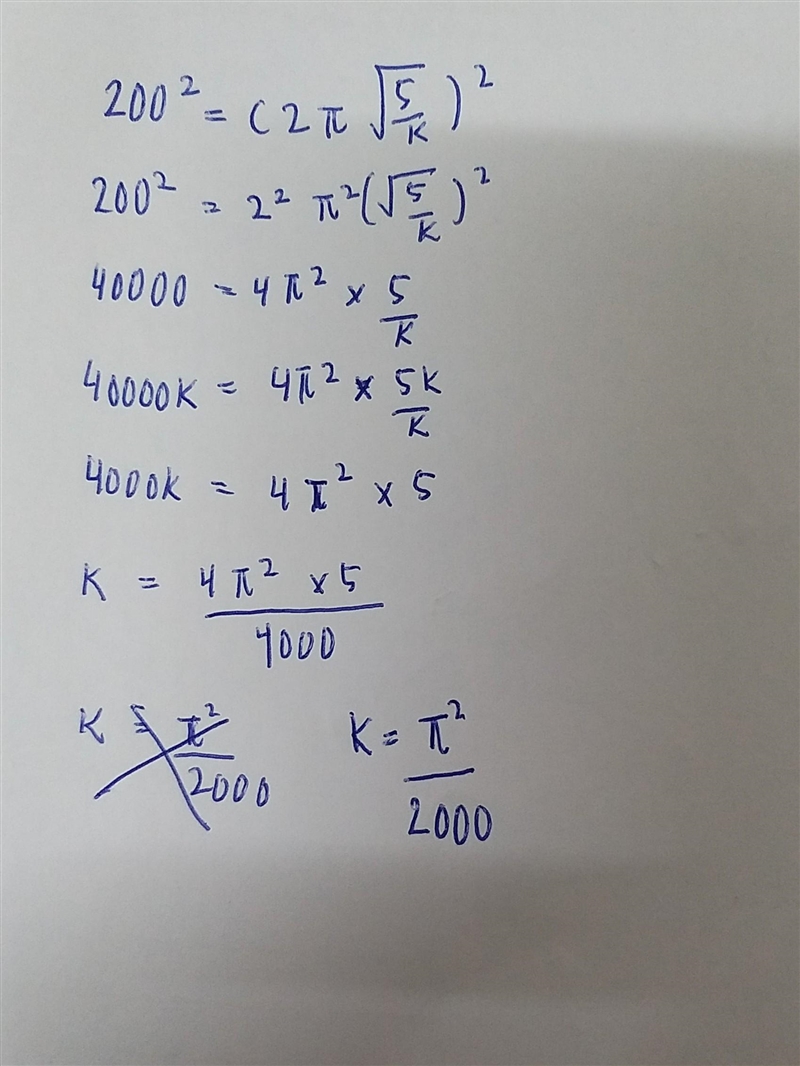 200² = (2π√(5/K))²
200² = 2² π²(√(5/K))²
40000 = 4π² × 5/K
40000K = 4π² × 5K/K
4000K = 4π² × 5
K = 4π² × 5 / 4000
K = π²/2000 K = π²/2000